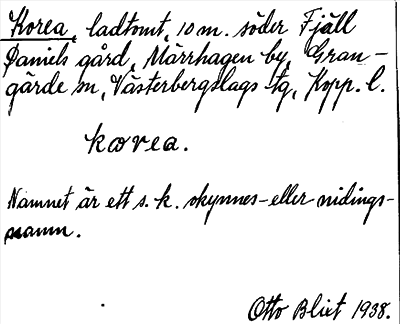 Korea, ladtomt, 10 m. söder Fjäll
Daniels gård, Märrhagen by, Gran-
gärde sn, Västerbergslags tg, Kopp. l.
korea.
Namnet är ett s. k. skynnes- eller nidings-
namn.
Otto Blixt 1938.